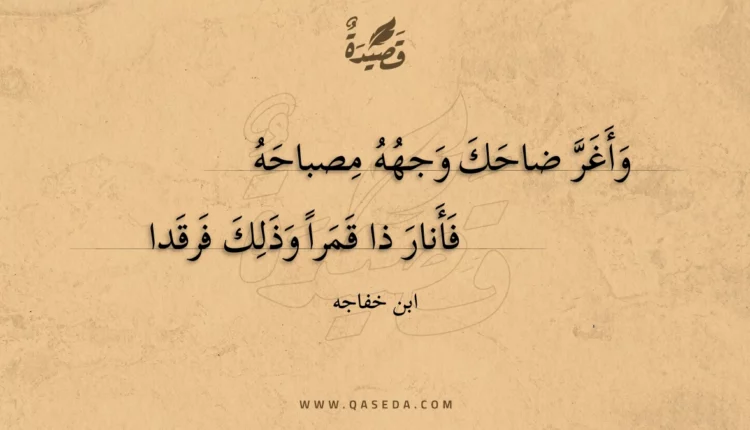 قَصِيدَةٌ
وَأَغَرَّ ضاحَكَ وَجهُهُ مِصباحَهُ
فَأَنارَ ذا قَمَراً وَذَلِكَ فَرقَدا
ابن خفاجه
WWW.QASEDA.COM